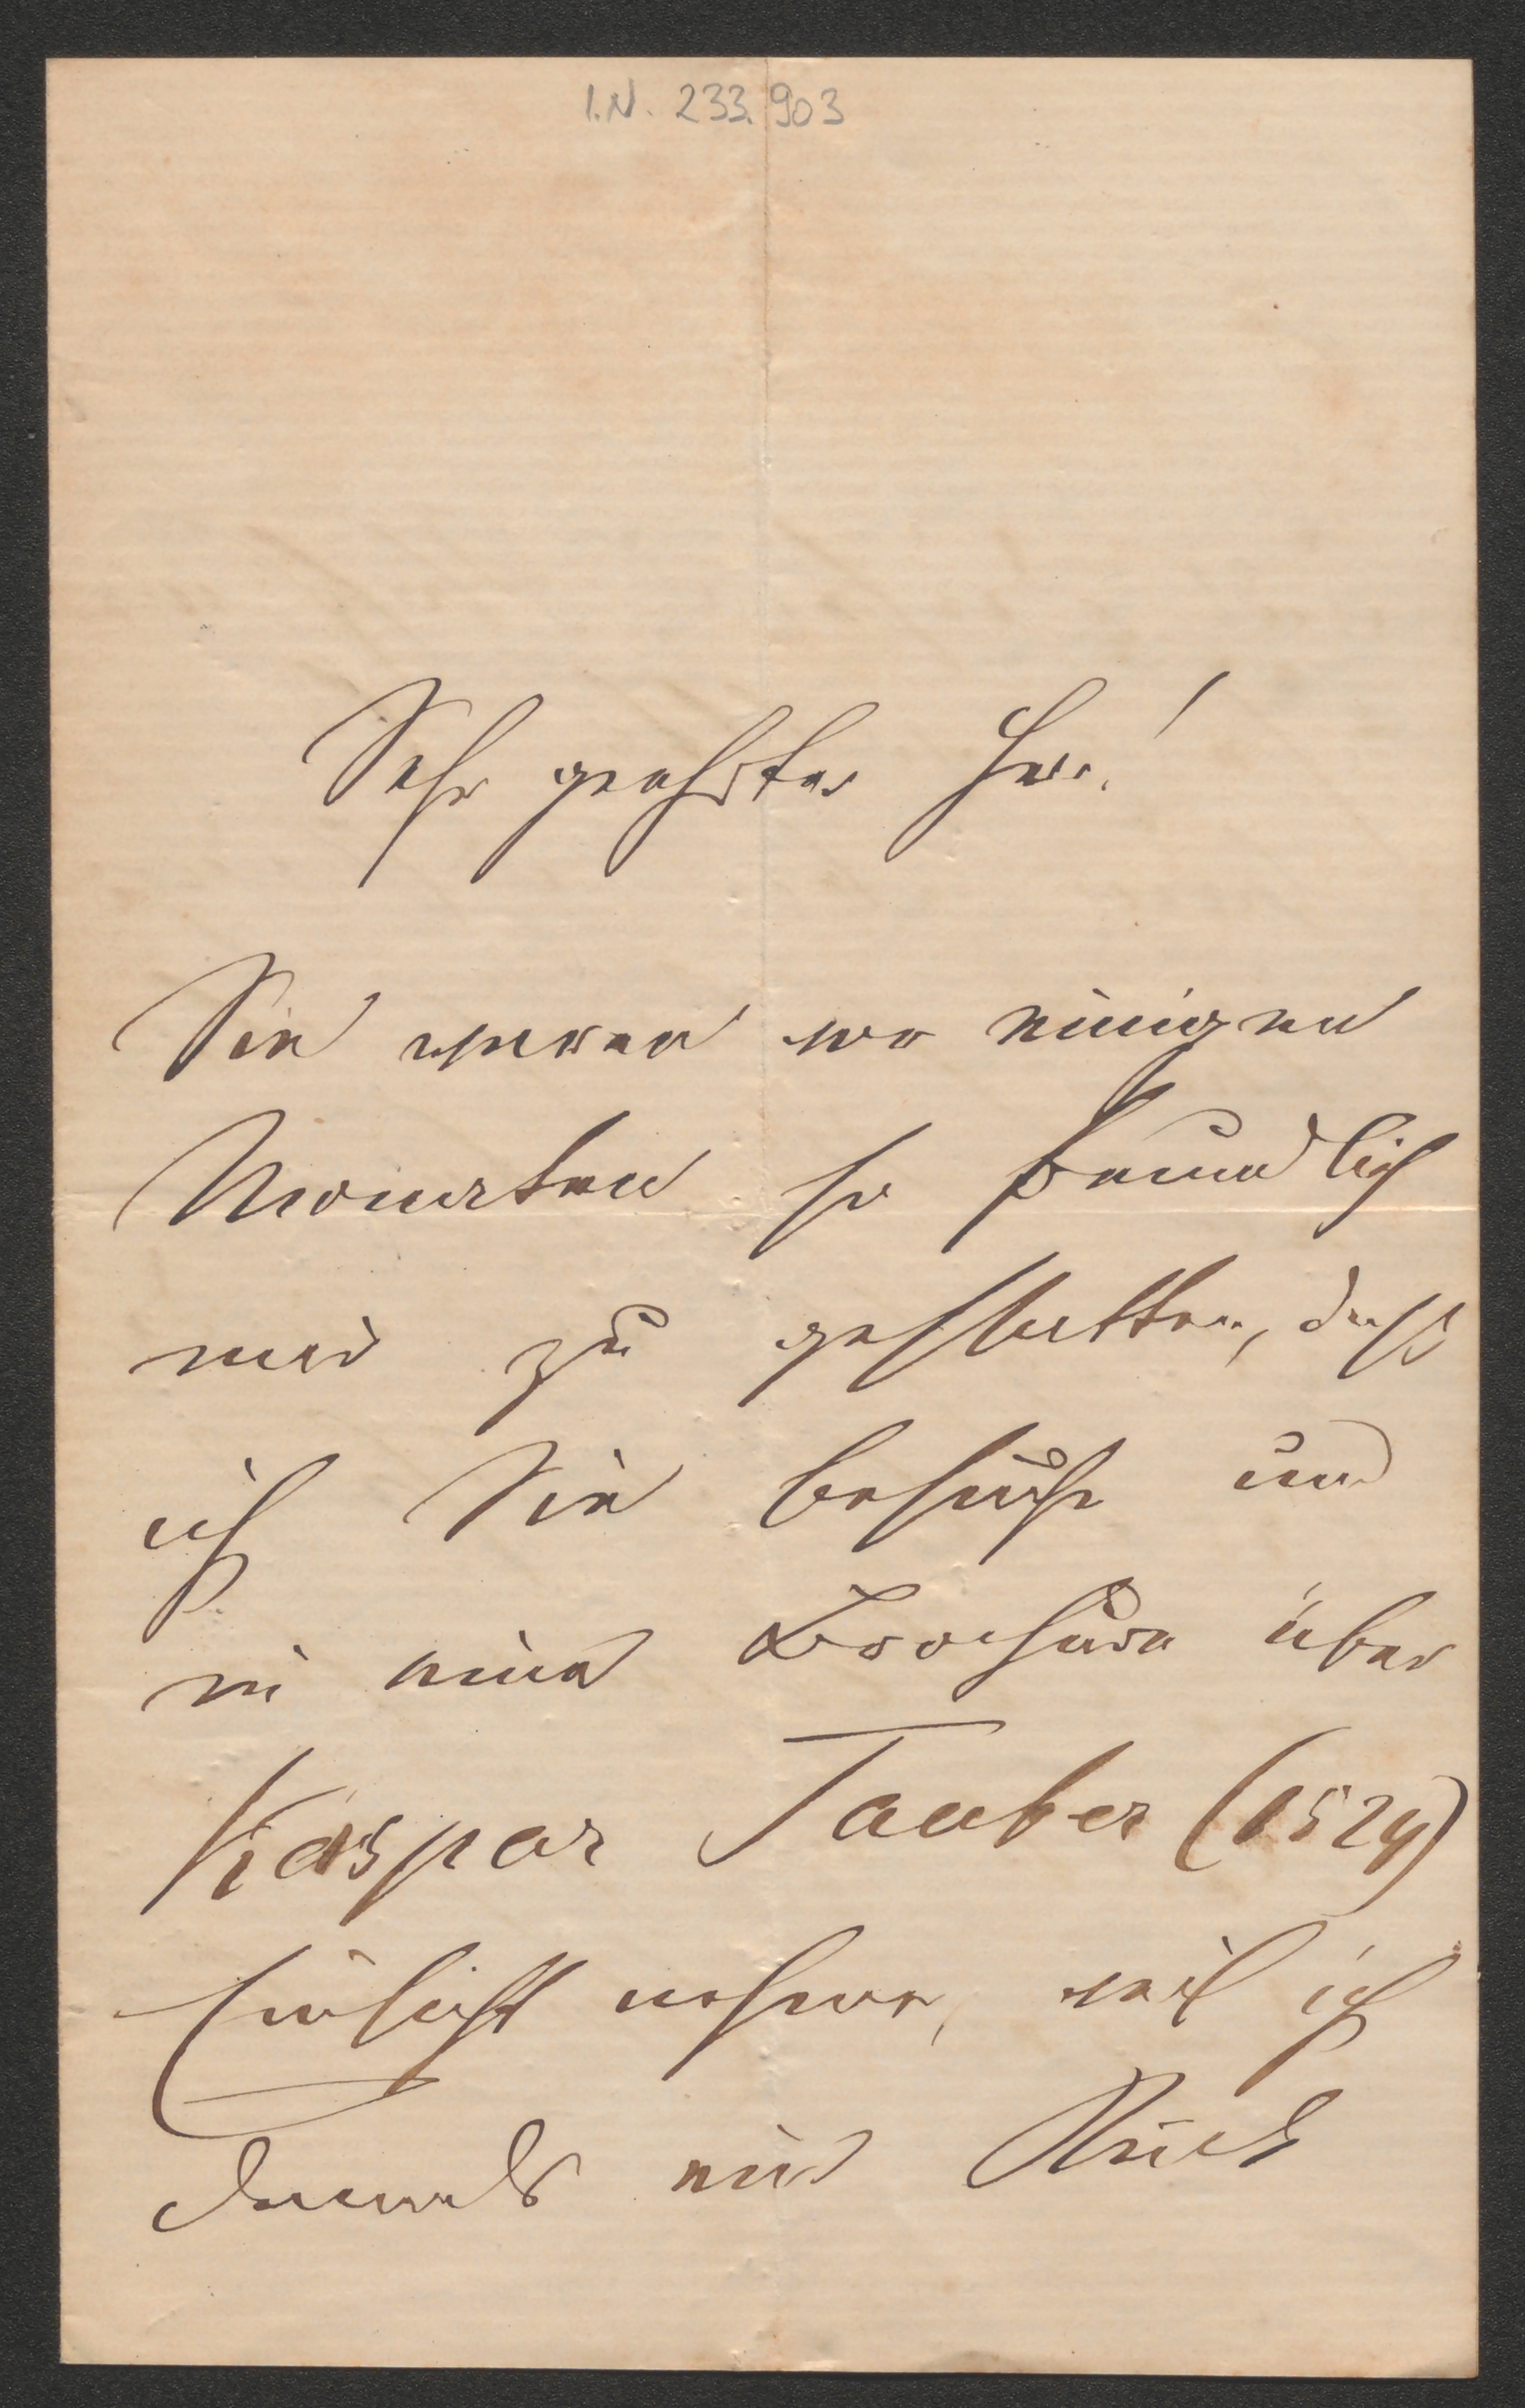 I.N. 233.903
Sehr geehrter Herr!
Sie waren vor einigen
Monaten so freundlich
mir zu gestatten, daß
ich Sie besuche und
in eine Brochure über
Kaspar Tauber (1524)
Einsicht nehme, weil ich
damals ein Stück